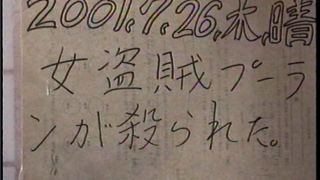 2001,7,26,木,晴
女盗賊プーラ
ンが殺られた。